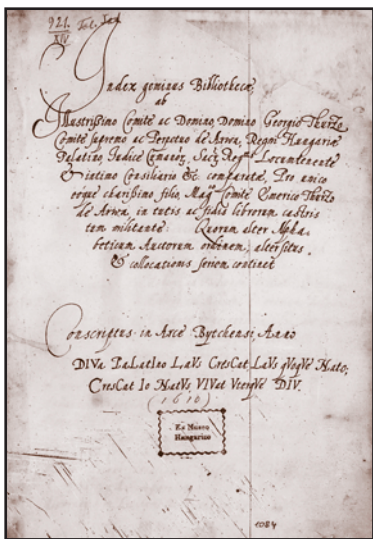 921. Fol. Lat.
XIV
Index geminus Bibliothecæ,
ab
Illustrißimo Comite ac Domino Domino Georgio Thurzo
Comite supremo ac Perpetuo de Arva, Regni Hungariæ
Palatino Iudice Comanor, Sac Reg Locumtenente
& intimo Consiliario &c. comparatæ, Pro unico
eoque charißimo filio, Mag Comite Emerico Thurzo
de Arva, in tutis ac fidis librorum castris
tum militante: Quorum alter Alpha-
beticum Auctorum ordinem, alter situs
& collocationis seriem continet
Conscriptus in Arce Bytchensi, Anno
DIVa PaLatIno LaVs CresCat, LaVs qVoqVe Nato;
CresCat Io NatVs, VIVat VterqVe DIV.
(1610)
Ex Museo
Hungarico
1084